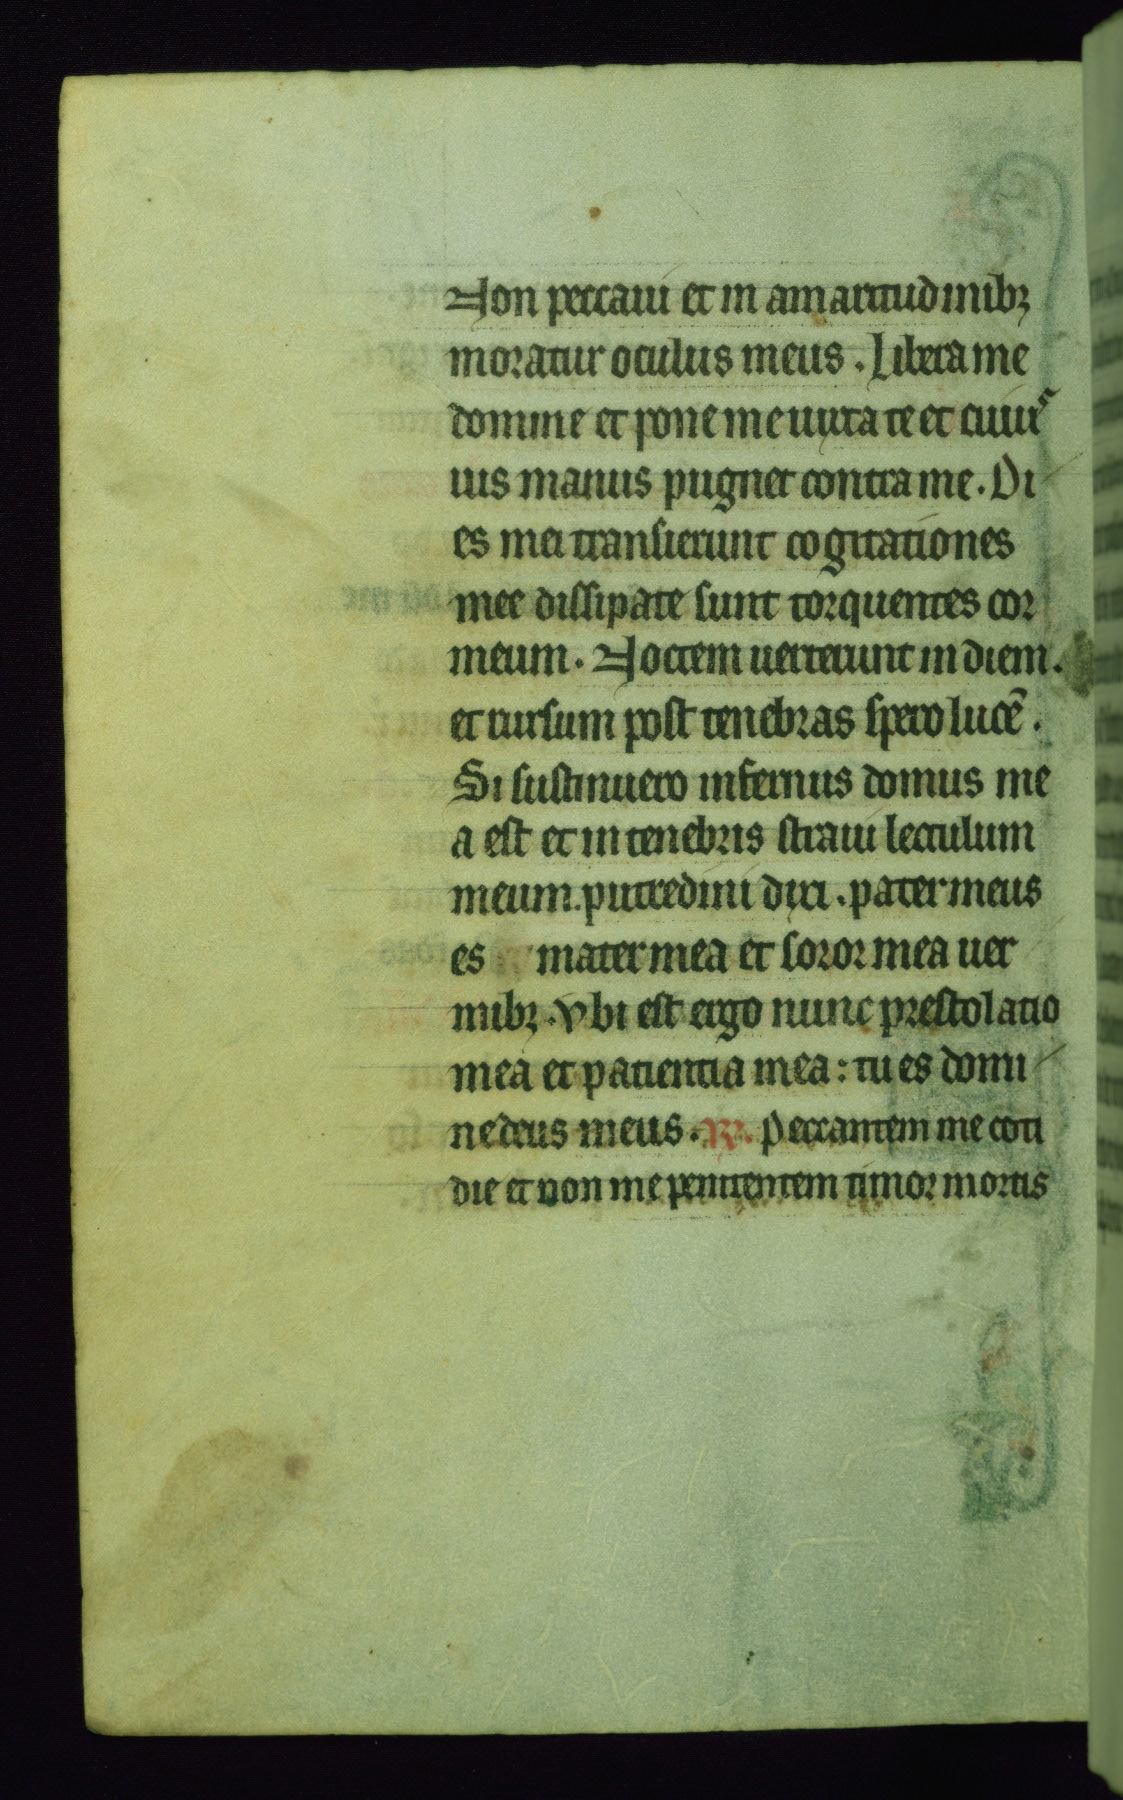 Non peccaui et in amaritudinibꝫ
moratur oculus meus . Libera me
domine et pone me iuxta te et cuiu
uis manus pugnet contra me . Di
es mei transierunt cogitationes
mee dissipate sunt torquentes cor
meum . Noctem uerterunt in diem .
et rursum post tenebras spero lucē .
Si sustinuero infernus domus me
a est et in tenebris straui lectulum
meum . putredini dixi . pater meus
es mater mea et soror mea uer
mibꝫ . vbi est ergo nunc prestolatio
mea et patientia mea : tu es domi
ne deus meus . R̃. Peccantem me coti
die et non me penitentem timor mortis